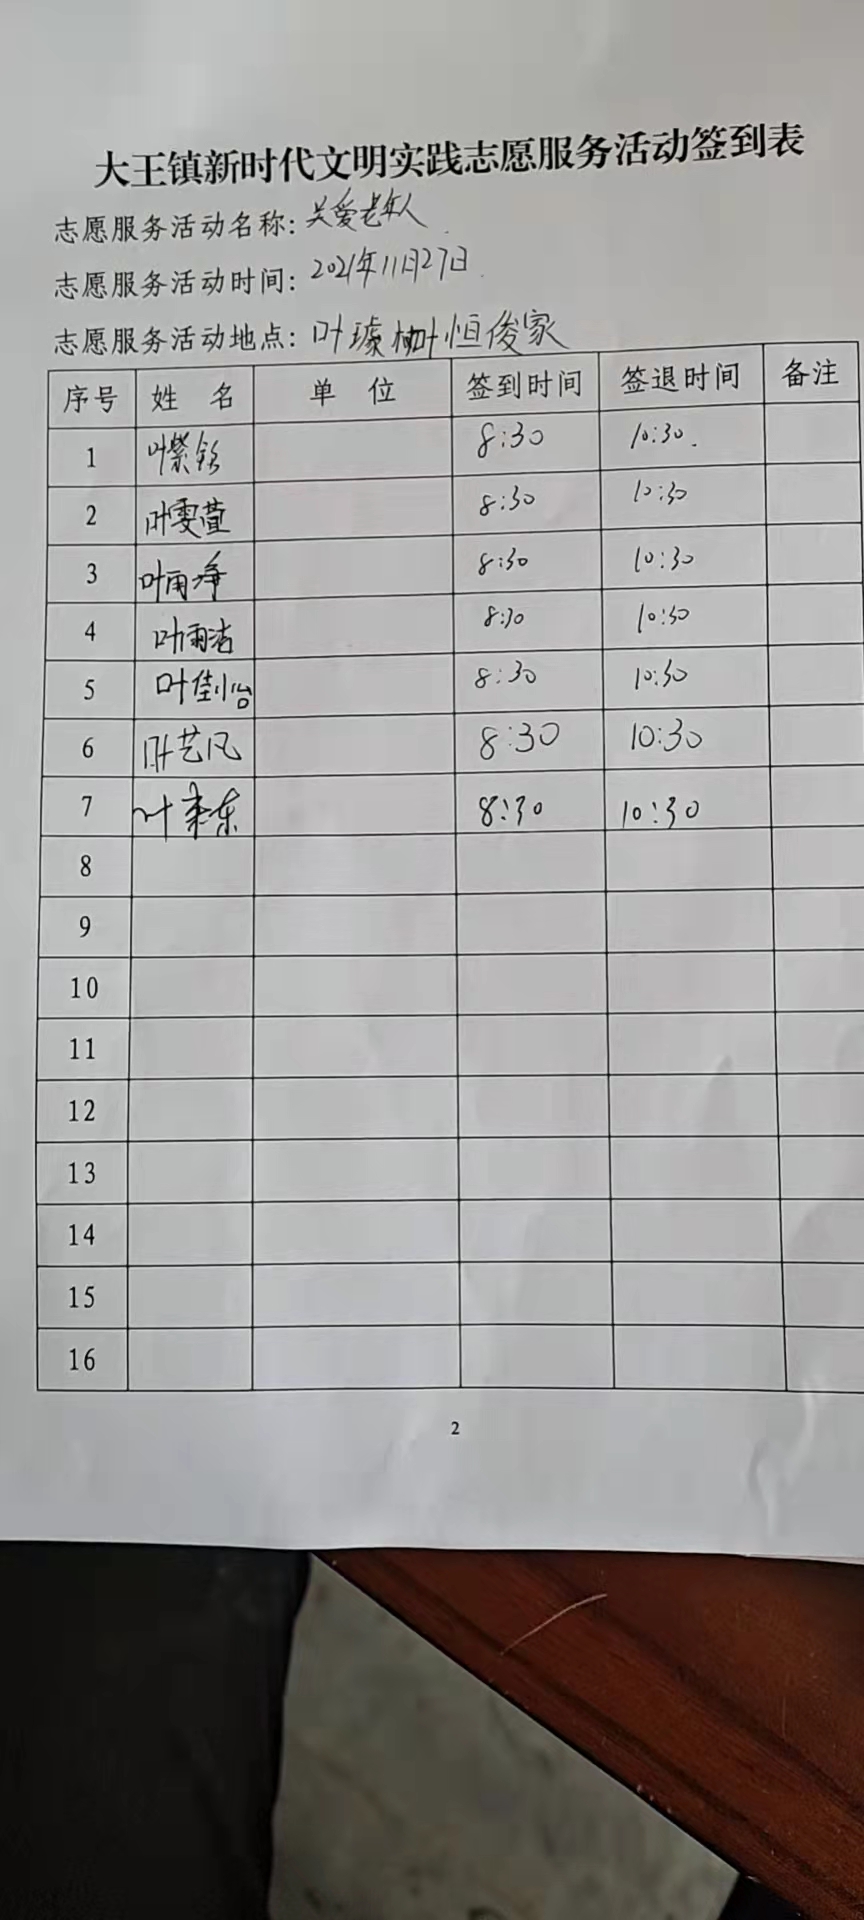 大王镇新时代文明实践志愿服务活动签到表
志愿服务活动名称：关爱老年人
志愿服务活动时间：2021年11月27日
志愿服务活动地点：叶璩村叶恒俊家
序号 姓 名 单 位 签到时间 签退时间 备注
1 叶紫铭 8:30 10:30.
2 叶雯萱 8:30 10:30
3 叶雨净 8:30 10:30
4 叶雨洁 8:30 10:30
5 叶佳怡 8:30 10:30
6 叶艺风 8:30 10:30
7 叶来东 8:30 10:30
8
9
10
11
12
13
14
15
16
2